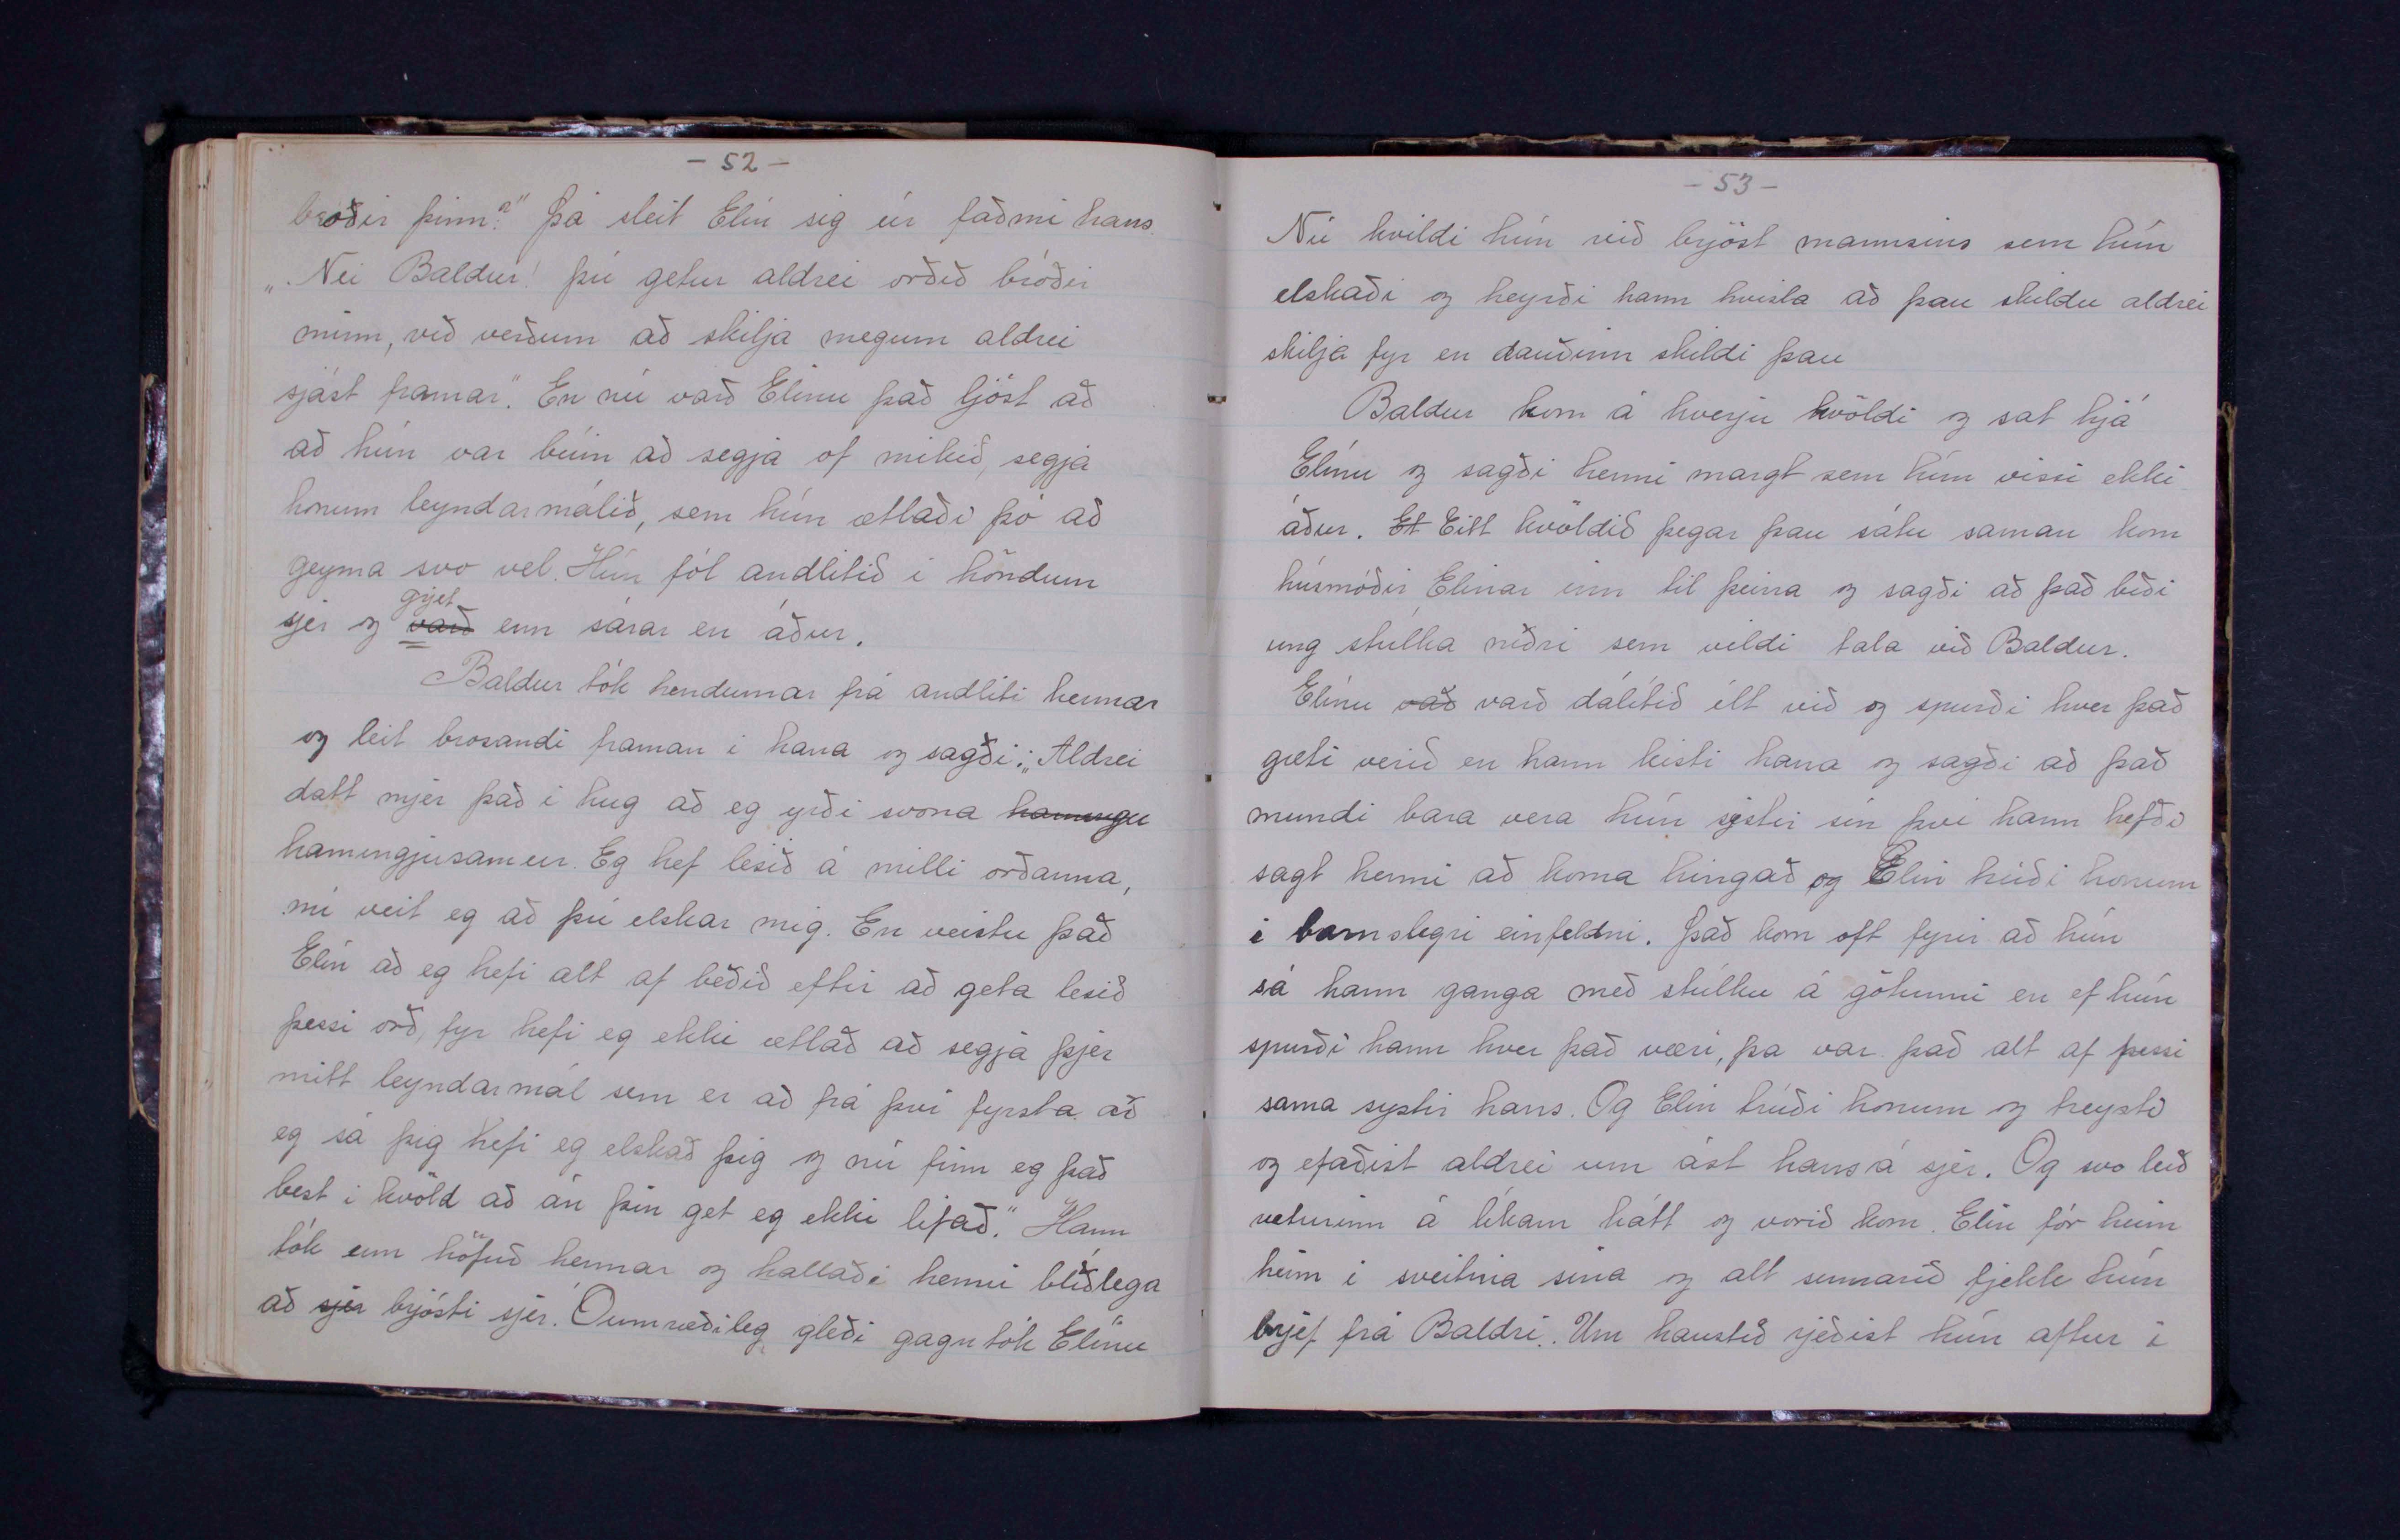 - 52 -
bróðir þinn?" Þá sleit Elín sig úr faðmi hans.
„Nei Baldur! þú getur aldrei orðið bróðir
minn, við verðum að skilja megum aldrei
sjást framar". En nú varð Elínu það ljóst að
að hún var búin að segja of mikið, segja
honum leyndarmálið, sem hún ætlaði þó að
geyma svo vel. Hún fól andlitið í höndum
grjet
sjer og varð enn sárar en áður.
Baldur tók hendurnar frá andliti hennar
og leit brosandi framan í hana og sagði: „Aldrei
datt mjer það í hug að eg yrði svona hamingu
hamingjusamur. Eg hef lesið á milli orðanna,
nú veit eg að þú elskar mig. En veistu það
Elín að eg hefi alt af beðið eftir að geta lesið
þessi orð, fyr hefi eg ekki ætlað að segja þjer
mitt leyndarmál sem er að frá því fyrsta að
eg sá þig hefi eg elskað þig og nú finn eg það
best í kvöld að án þín get eg ekki lifað." Hann
tók um höfuð hennar og hallaði henni blíðlega
að sjer brjósti sjer. Óumræðileg gleði gagntók Elínu
- 53 -
Nú hvildi hún við brjóst mannsins sem hún
elskaði og heyrði hann hvisla að þau skildu aldrei
skilja fyr en dauðinn skildi þau
Baldur kom á hverju kvöldi og sat hjá
Elínu og sagði henni margt sem hún vissi ekki
áður. Et Eitt kvöldið þegar þau sátu saman kom
húsmóðir Elinar inn til þeirra og sagði að það biði
ung stúlka niðri sem vildi tala við Baldur.
Elínu vað varð dálítið ílt við og spurði hver það
gæti verið en hann kisti hana og sagði að það
mundi bara vera hún systir sín því hann hefði
sagt henni að koma hingað og Elín trúði honum
í barnslegri einfeldni. Það kom oft fyrir að hún
sá hann ganga með stúlku á götunni en ef hún
spurði hann hver það væri, þa var það alt af þessi
sama systir hans. Og Elín trúði honum og treysti
og efaðist aldrei um ást hans á sjer. Og svo leið
veturinn á líkam hátt og vorið kom. Elín fór heim
heim í sveitina sína og alt sumarið fjekk hún
brjef frá Baldri. Um haustið rjeðist hún aftur í